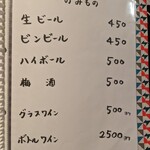 のみもの
生ビール 450
ビンビール 450
ハイボール 500
梅酒 500
グラスワイン 500円
ボトルワイン 2500円